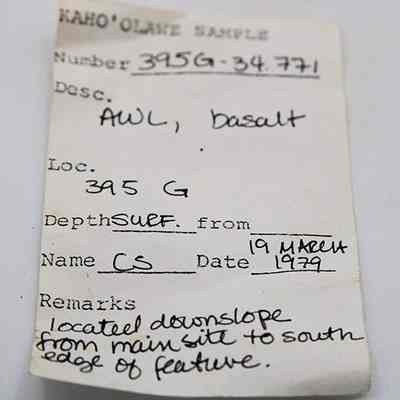 KAHO'OLAWE SAMPLE
Number 395G-34.771
Desc.
AWL, basalt
Loc.
395 G
Depth SURF. from
Name CS Date 19 MARCH 1979
Remarks
located downslope
from main site to south
edge of feature.